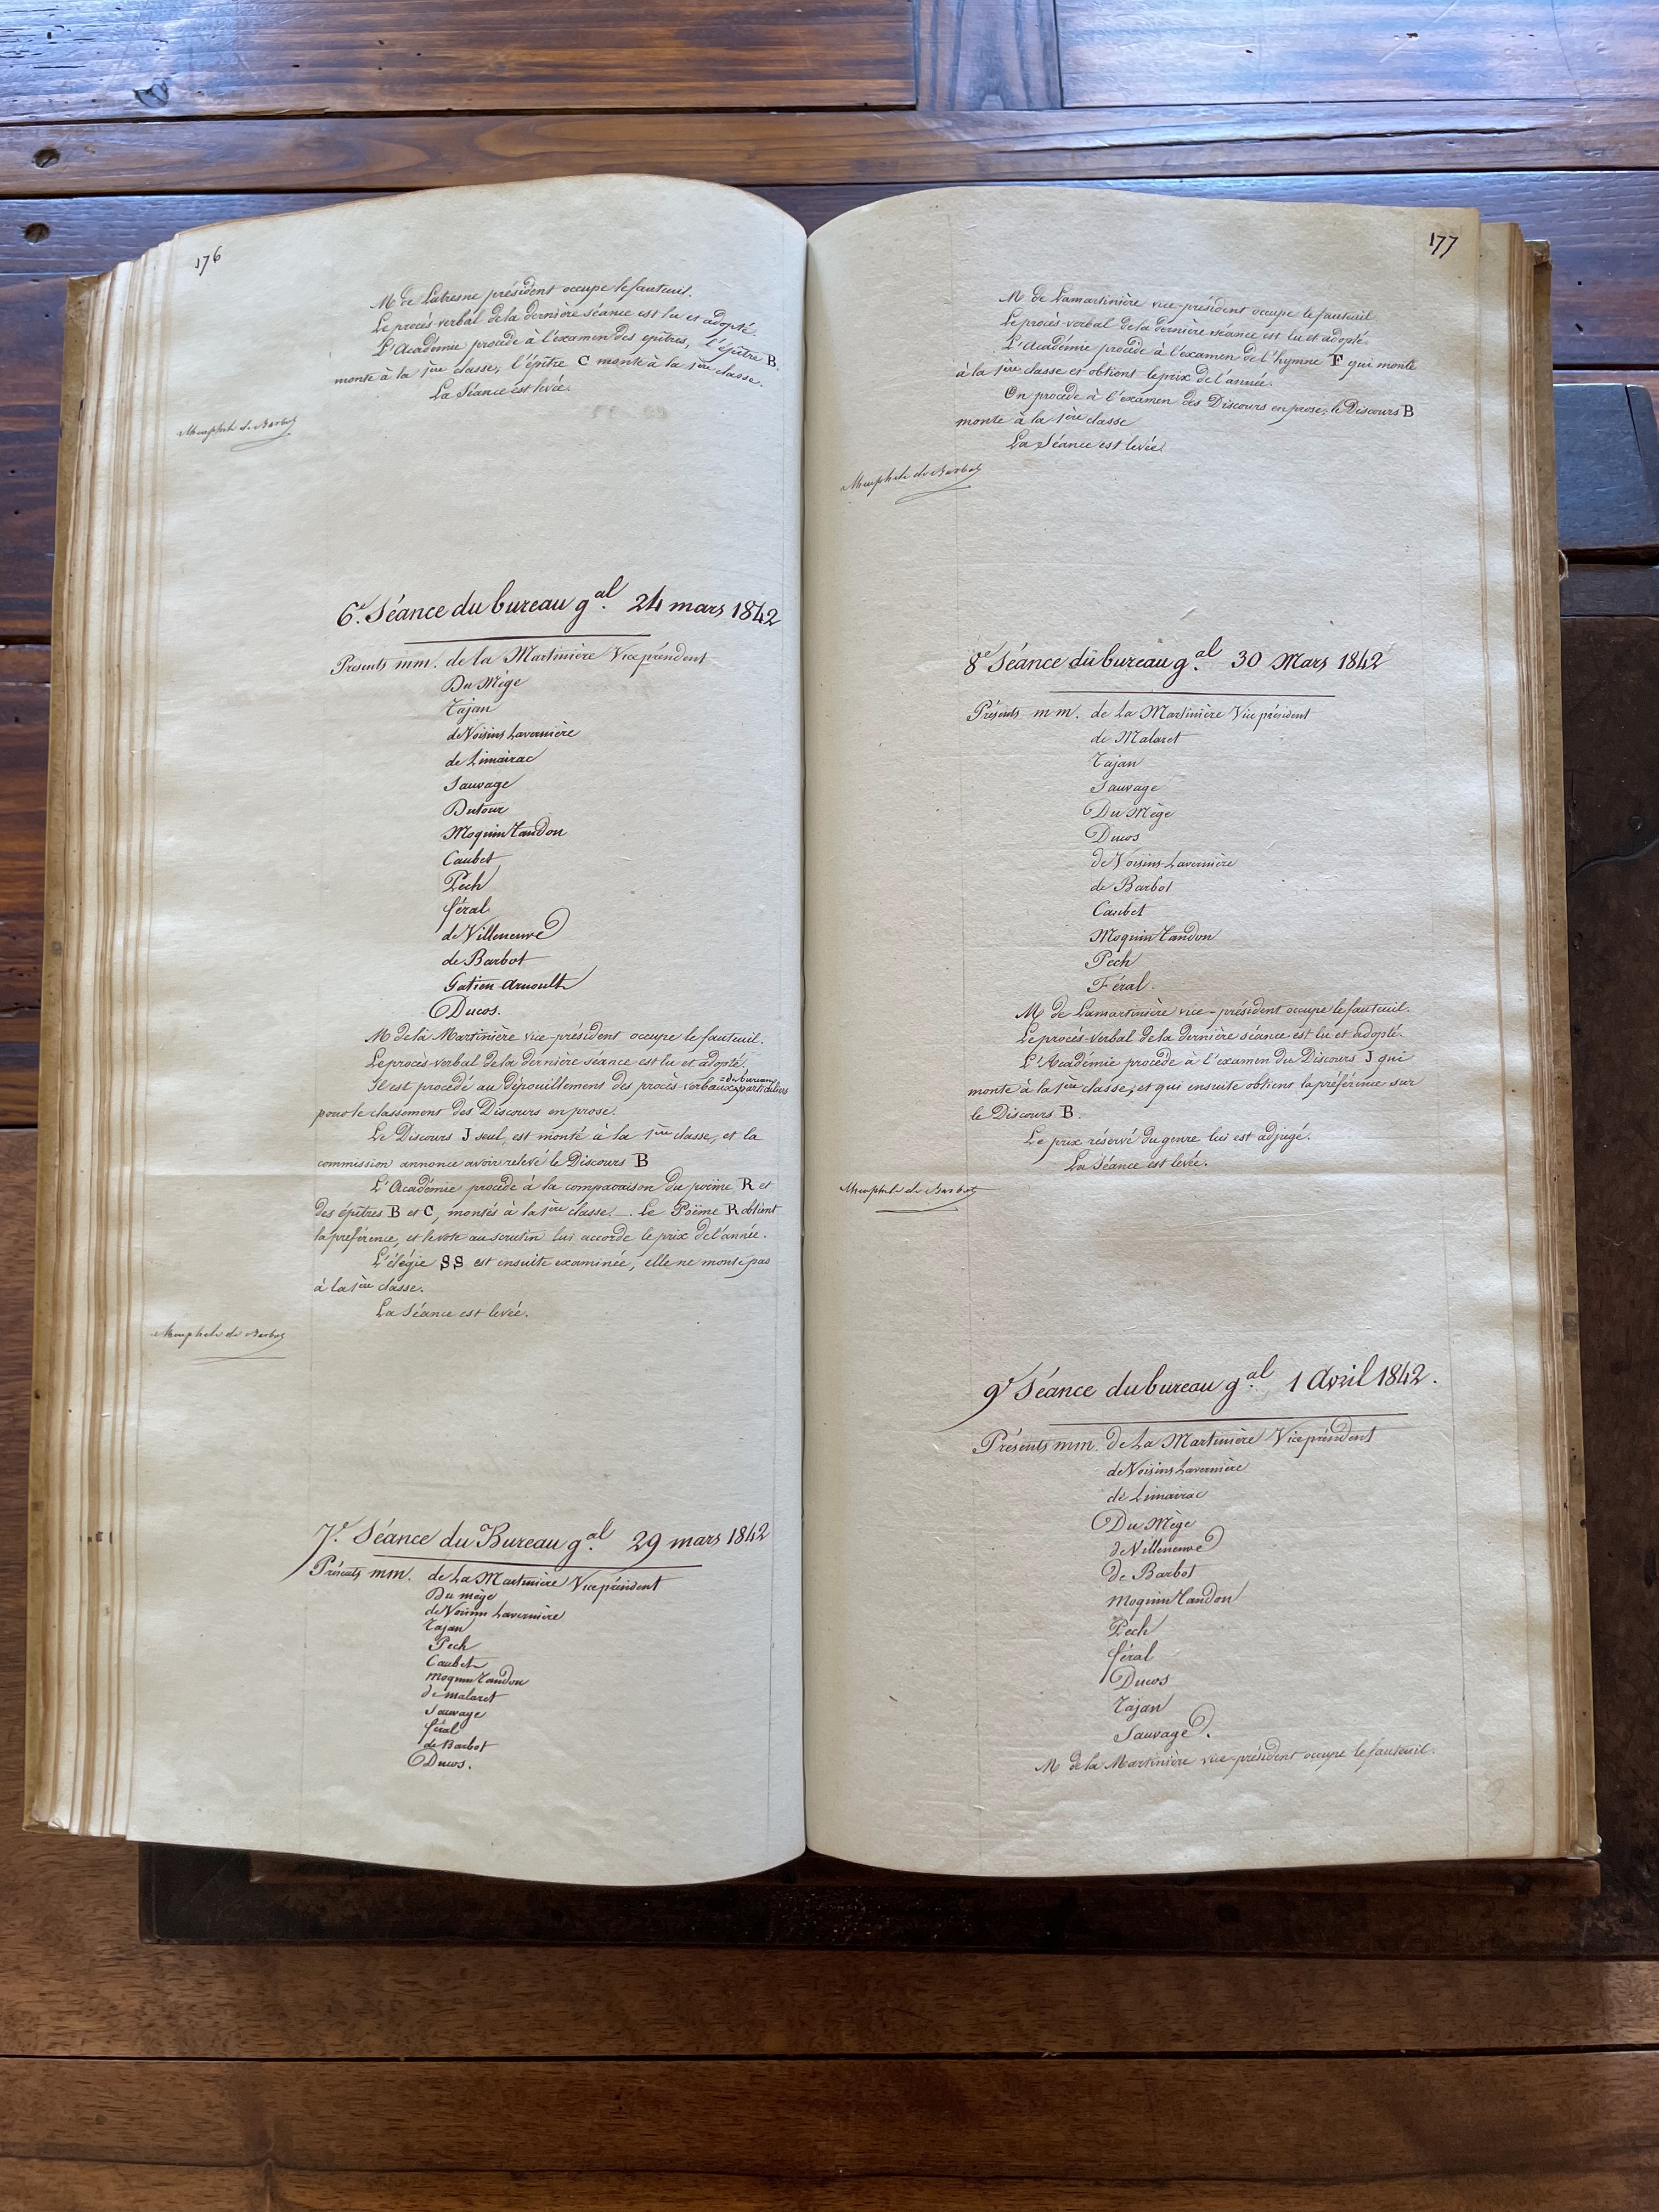 176
M de Latresne président occupe le fauteuil.
Le procès verbal de la dernière séance est lu et adopté.
L'Académie procède à l'examen des epîtres, l'épître B.
monte à la 1ère classe, l'épître C monte à la 1ère classe.
La Séance est levée.
de Barbot
6e Séance du bureau gal. 24 mars 1842
Présents mm. de la Martinière Vice président
Du Mège
Tajan
de Voisins Lavernière
de Limairac
Sauvage
Dutour
Moquin Tandon
Caubet
Pech
féral
de Villeneuve
de Barbot
Gatien Arnoult
Ducos.
M de la Martinière vice-président occupe le fauteuil.
Le procès-verbal de la dernière séance est lu et adopté,
Il est procédé au dépouillement des procès-verbaux du bureau particuliers
pour le classement des Discours en prose.
Le Discours J seul, est monté à la 1ère classe, et la
commission annonce avoir relevé le Discours B
L'Académie procède à la comparaison du poëme R et
des épîtres B et C, montés à la 1ère classe. Le Poëme R obtient
la préférence, et le vote au scrutin lui accorde le prix de l'année.
L'élégie SS est ensuite examinée, elle ne monte pas
à la 1ère classe.
La Séance est levée.
de Barbot
7e Séance du Bureau gal. 29 mars 1842
Présents mm. de La Martinière Vice président
Du mège
de Voisins Lavernière
Tajan
Pech
Caubet
moquin Tandon
de malaret
Sauvage
féral
de Barbot
Ducos.
177
M de Lamartinière vice-président occupe le fauteuil
Le procès-verbal de la dernière séance est lu et adopté.
L'Académie procède à l'examen de l'hymne F qui monte
à la 1ère classe et obtient le prix de l'année.
On procède à l'examen des Discours en prose; le Discours B
monte à la 1ère classe
La Séance est levée.
de Barbot
8e Séance du bureau gal. 30 Mars 1842
Présents mm. de La Martinière Vice président
de Malaret
Tajan
Sauvage
Du Mège
Ducos
de Voisins-Lavernière
de Barbot
Caubet
Moquin Tandon
Pech
Féral.
M de Lamartinière vice-président occupe le fauteuil.
Le procès-verbal de la dernière séance est lu et adopté.
L'Académie procède à l'examen du Discours J qui
monte à la 1ère classe, et qui ensuite obtient la préférence sur
le Discours B.
Le prix réservé du genre lui est adjugé.
La Séance est levée.
de Barbot
9e Séance du bureau gal. 1 Avril 1842.
Présents mm. de La Martinière Vice président
de Voisins Lavernière
de Limairac
Du Mège
de Villeneuve
de Barbot
Moquin Tandon
Pech
féral
Ducos
Tajan
Sauvage.
M de la Martinière vice-président occupe le fauteuil.